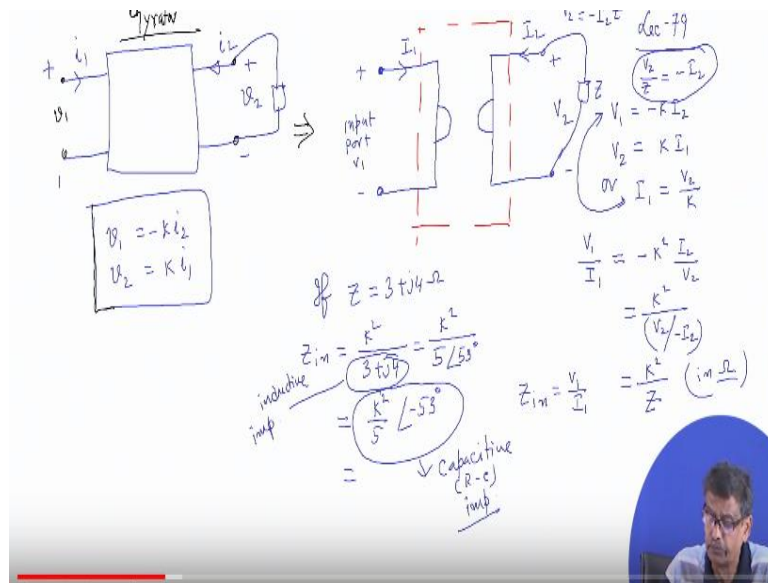 Gyrator
i₁
i₂
+
+
v₁
v₂
-
v₁ = -k i₂
v₂ = k i₁
⇒
I₁
I₂
+
+
input
port
v₁
V₂
Z
-
-
Lec-79
V₂/Z = -I₂
V₁ = -K I₂
V₂ = K I₁
or I₁ = V₂/K
V₁/I₁ = -K² I₂/V₂
= K²/(V₂/-I₂)
Z_in = V₁/I₁ = K²/Z (in Ω)
If Z = 3+j4 Ω
Z_in = K²/(3+j4) = K²/(5∠53°)
inductive
imp
= K²/5 ∠-53°
↓ Capacitive
(R-C)
imp
=